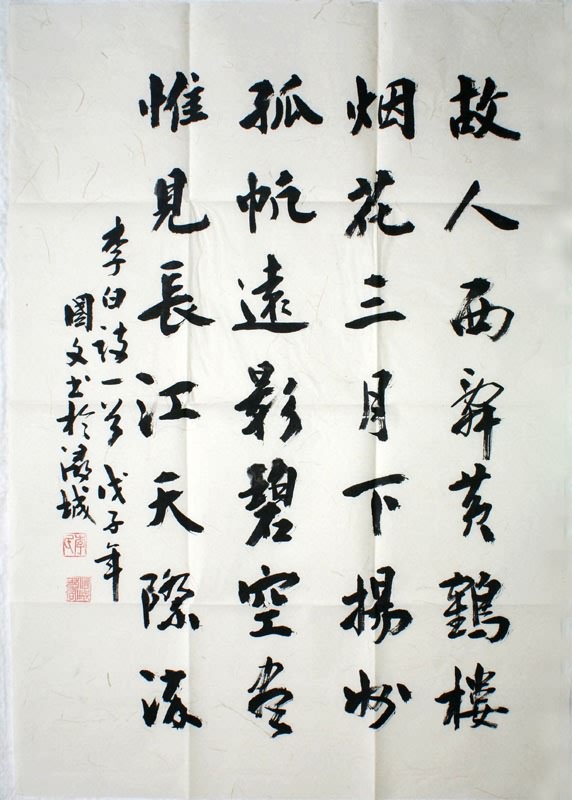 故人西辞黄鶴樓
烟花三月下揚州
孤帆遠影碧空尽
惟見長江天際流
李白詩一首 戊子年
國文书於濤城